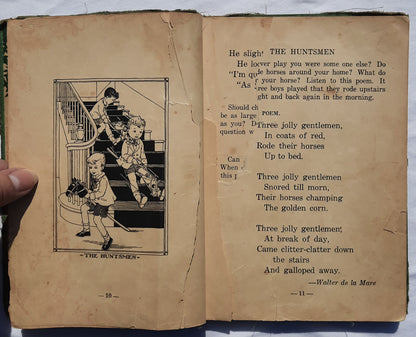 -THE HUNTSMEN-
—10—
He sligh THE HUNTSMEN
He lo ver play you were some one else? Do
"I'm qu de horses around your home? What do
"As f your horse? Listen to this poem. It
ree boys played that they rode upstairs
ght and back again in the morning.
Should ch
be as large POEM.
as you? Do Three jolly gentlemen,
question w In coats of red,
Rode their horses
Can Up to bed.
When
this Three jolly gentlemen
Snored till morn,
Their horses champing
The golden corn.
Three jolly gentlemen,
At break of day,
Came clitter-clatter down
the stairs
And galloped away.
—Walter de la Mare
—11—